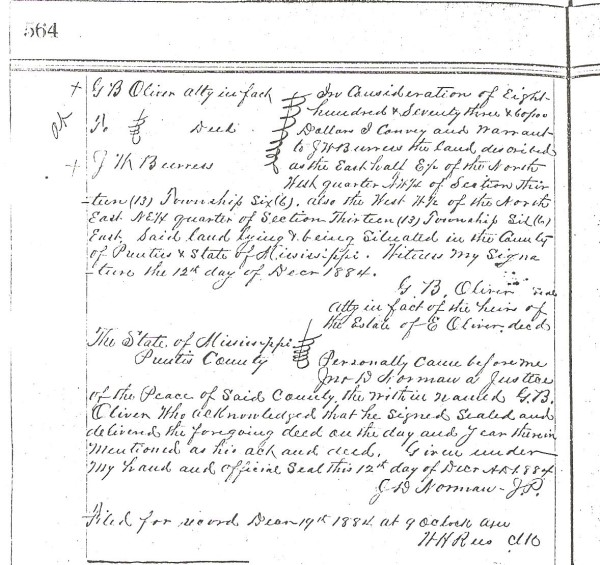 564
+ G B Oliver atty in fact
In Consideration of Eight
hundred & Seventy three & 60/100
To Deed
Dollars I Convey and Warrant
to J W Burress the land described
+ J W Burress
as the East half E/2 of the North
West quarter NW/4 of Section Thir
teen (13) Township Six (6). also the West W/2 of the North
East NE/4 quarter of Section Thirteen (13) Township Six (6)
East. Said land lying & being Situated in the County
of Prentiss & State of Mississippi. Witness My Signa
ture the 12th day of Decr 1884.
G. B. Oliver Seal
atty in fact of the heirs of
the Estate of E Oliver. decd
The State of Mississippi
Prentiss County
Personally Came before me
Jno D Norman a Justice
of the Peace of Said County, the within named G. B.
Oliver Who acknowledged that he Signed Sealed and
delivered the foregoing deed on the day and Year therein
Mentioned as his act and deed. Given under
My hand and Official Seal this 12th day of Decr A.D. 1884
J D Norman - J.P.
Filed for record Decr 19th 1884 at 9 Oclock am
W H Rees Clk